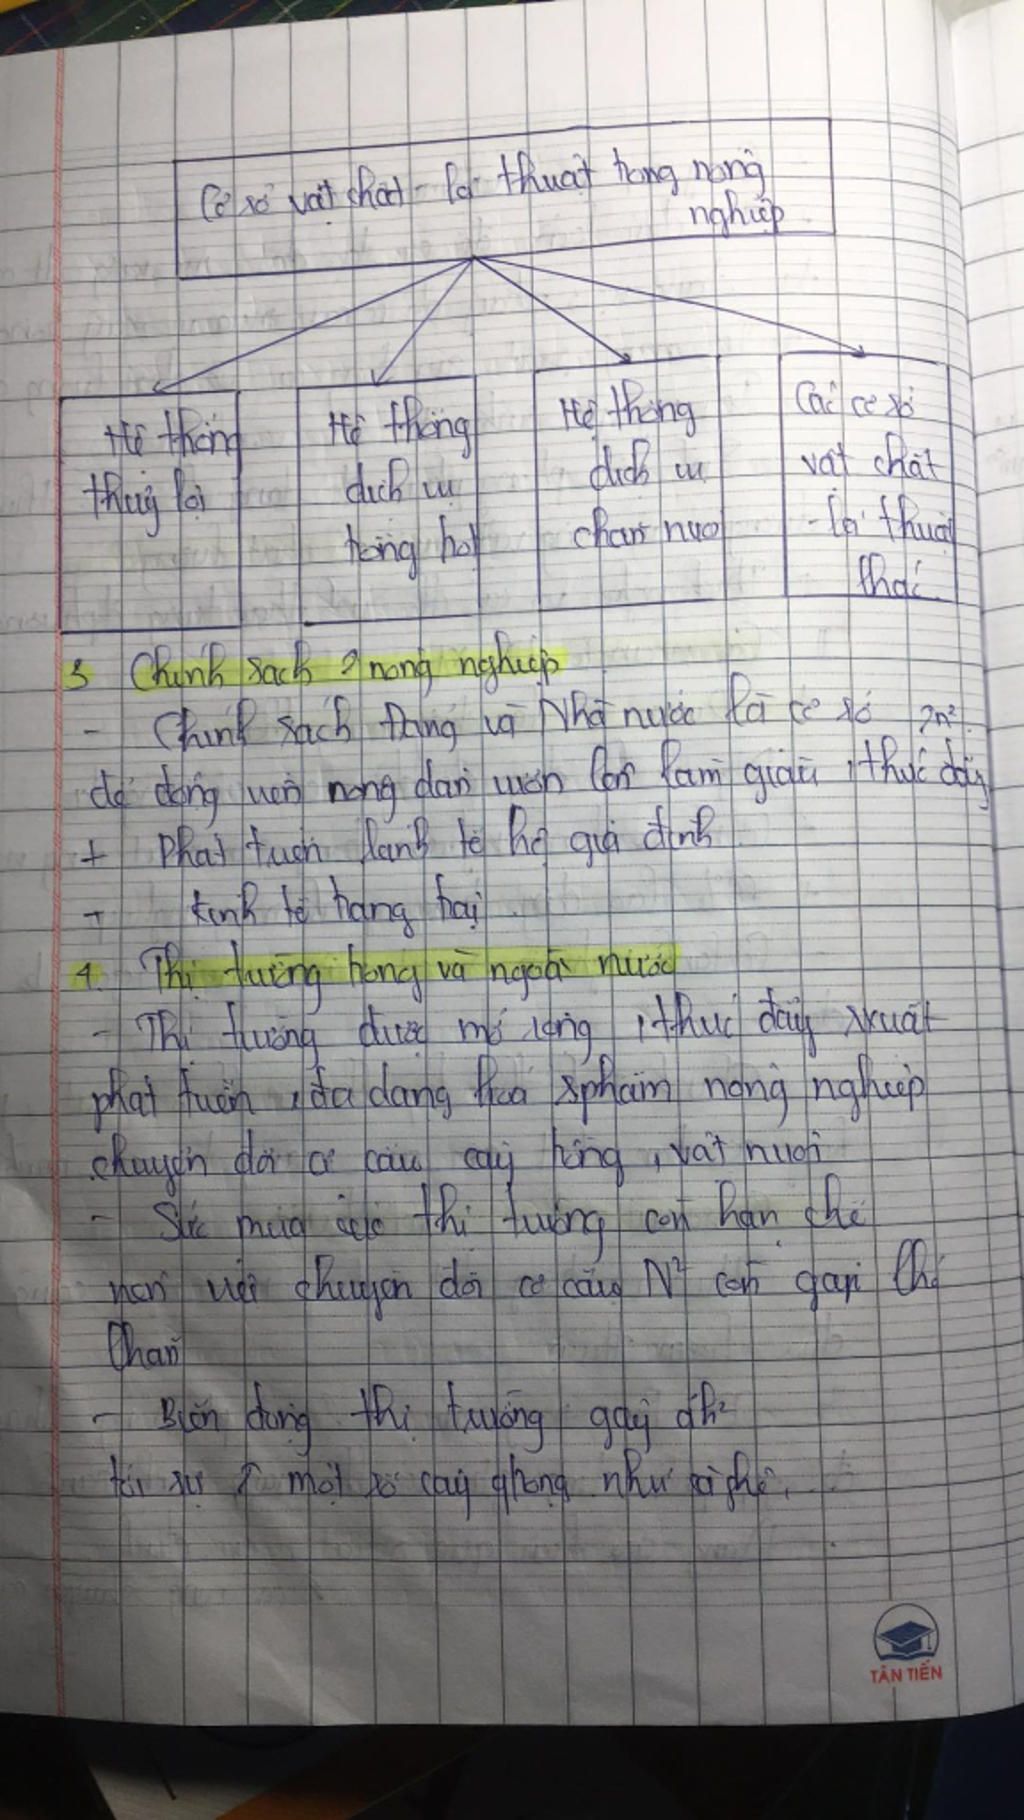 Cơ sở vật chất - kĩ thuật trong nông
nghiệp
Hệ thống
thuỷ lợi
Hệ thống
dịch vụ
trồng trọt
Hệ thống
dịch vụ
chăn nuô
Các cơ sở
vật chất
- kĩ thuật
khác
3 Chính sách ↑ nông nghiệp
- Chính sách Đảng và Nhà nước là cơ sở
để động viên nông dân vươn lên làm giàu, thúc đẩy
+ Phát triển kinh tế hộ gia đình
+ kinh tế trang trại
4. Thị trường trong và ngoài nước
- Thị trường được mở rộng, thúc đẩy xxuất
phát triển, đa dạng hoá sphẩm nông nghiệp
chuyển đổi cơ cấu cây trồng, vật nuôi
- Sức mua thị trường còn hạn chế
nên việc chuyển đổi cơ cấu N² còn gặp khó
khăn
- Biến động thị trường gây ah²
tới sự ↑ một số cây trồng như cà phê.
TÂN TIẾN